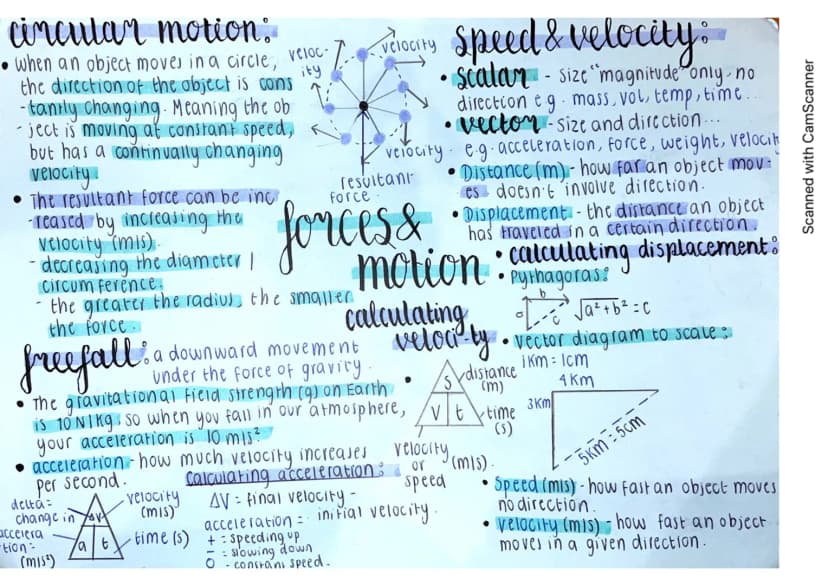 circular motion:
• when an object moves in a circle,
the direction of the object is cons
-tantly changing. Meaning the ob
-ject is moving at constant speed,
but has a continually changing
velocity
• The resultant force can be inc
-reased by increasing the
velocity (m/s).
- decreasing the diameter /
circumference.
- the greater the radius, the smaller
the force.
veloc-
ity
velocity
velocity.
resultant
force.
forces &
motion
speed & velocity:
• scalar - size "magnitude" only, no
direction e.g. mass, vol, temp, time...
• vector - size and direction...
e.g. acceleration, force, weight, velocit
• Distance (m) - how far an object mov:
es doesn't involve direction.
• Displacement - the distance an object
has traveled in a certain direction.
• calculating displacement:
• Pythagoras:
a
b
c
√a²+b² = c
• vector diagram to scale:
1km = 1cm
4km
3km
5km = 5cm
• Speed (m/s) - how fast an object moves
no direction.
• velocity (m/s) - how fast an object
moves in a given direction.
calculating
veloci-ty
• S
distance
(m)
V
t
time
(s)
velocity
or
speed
(m/s).
freefall: a downward movement
under the force of gravity.
• The gravitational field strength (g) on Earth
is 10N/kg, so when you fall in our atmosphere,
your acceleration is 10 m/s²
• acceleration - how much velocity increases
per second.
calculating acceleration:
delta =
change in
ΔV
velocity
(m/s)
accelera
tion =
(m/s²)
a
t
time (s)
ΔV = final velocity -
initial velocity.
acceleration =
+ = speeding up
- = slowing down
0 - constant speed.
Scanned with CamScanner